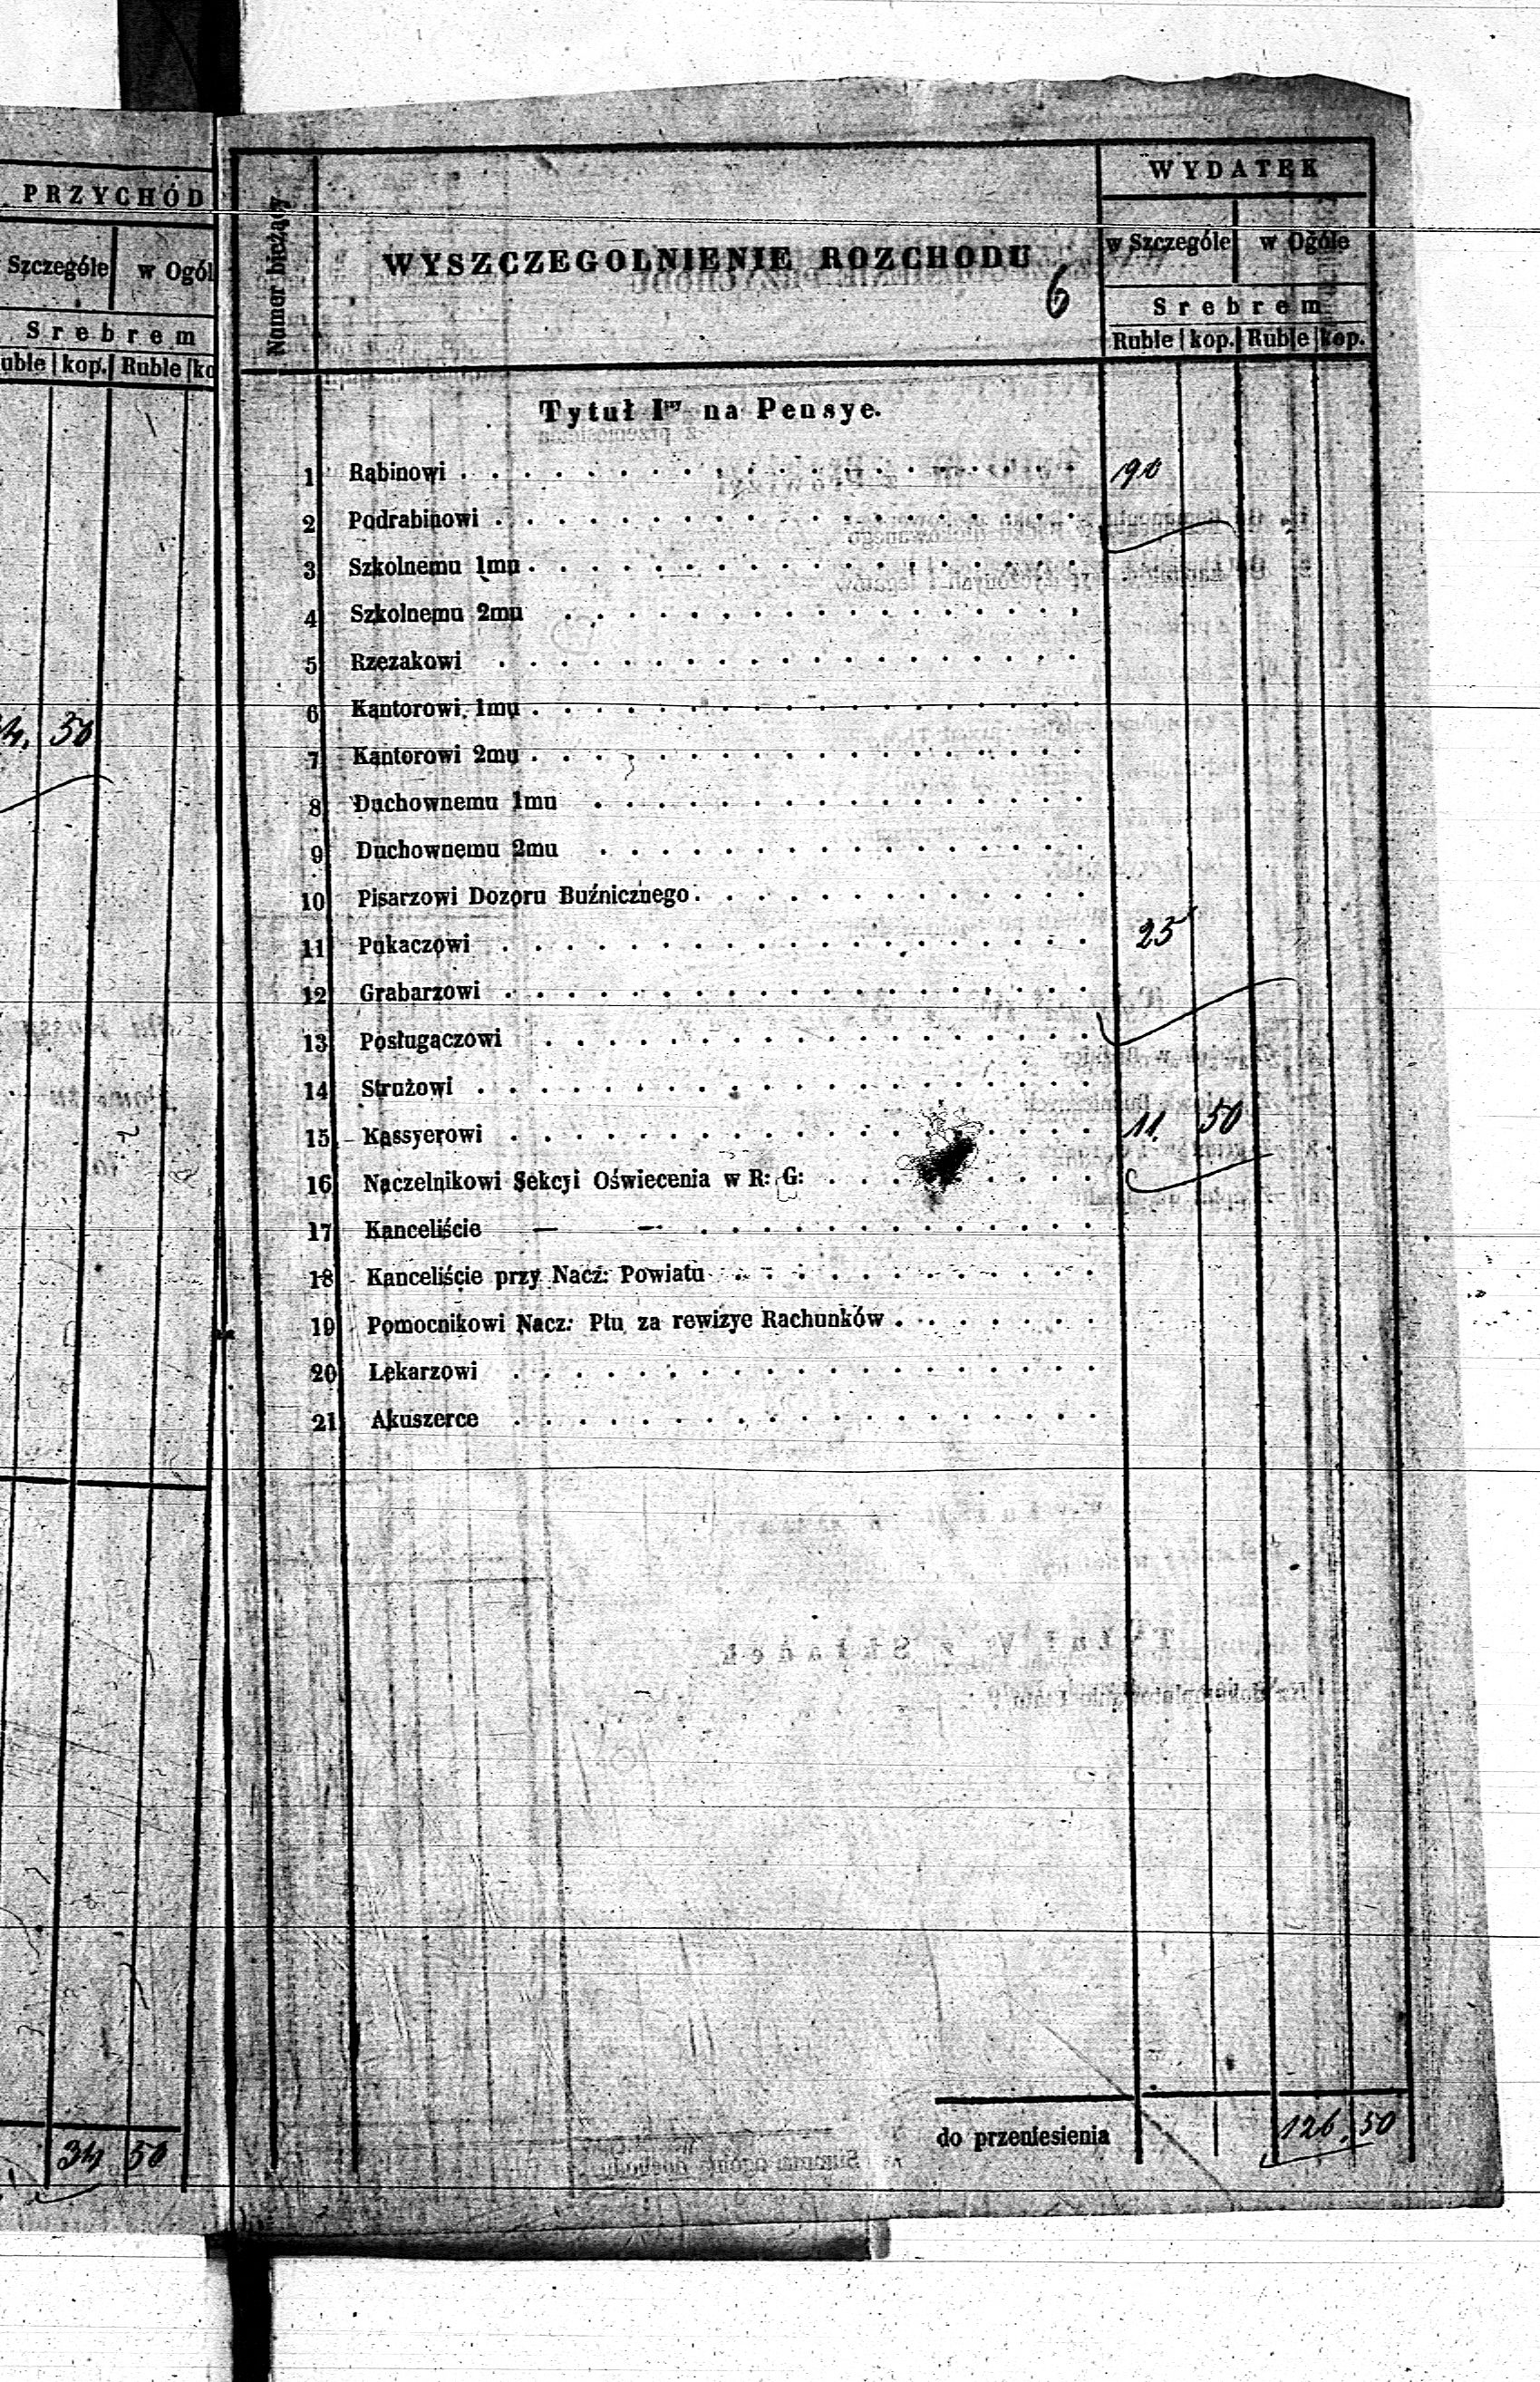 PRZYCHÓD
Szczególe w Ogól
Srebrem
uble kop. Ruble ko
50
34 50
Numer bieżący
WYSZCZEGOLNIENIE ROZCHODU
6
WYDATEK
w Szczególe w Ogóle
Srebrem
Ruble kop. Ruble kop.
Tytuł Iszy na Pensye.
1 Rąbinowi . . . 90
2 Podrabinowi . . .
3 Szkolnemu 1mu . . .
4 Szkolnemu 2mu . . .
5 Rzezakowi . . .
6 Kantorowi 1mu . . .
7 Kantorowi 2mu . . .
8 Duchownemu 1mu . . .
9 Duchownemu 2mu . . .
10 Pisarzowi Dozoru Buźnicznego . . .
11 Pukaczowi . . . 25
12 Grabarzowi . . .
13 Posługaczowi . . .
14 Strużowi . . .
15 Kassyerowi . . . 11. 50
16 Naczelnikowi Sekcyi Oświecenia w R: G: . . .
17 Kanceliście — — . . .
18 Kanceliście przy Nacz: Powiatu . . .
19 Pomocnikowi Nacz: Ptu za rewizye Rachunków . . .
20 Lekarzowi . . .
21 Akuszerce . . .
do przeniesienia 126. 50